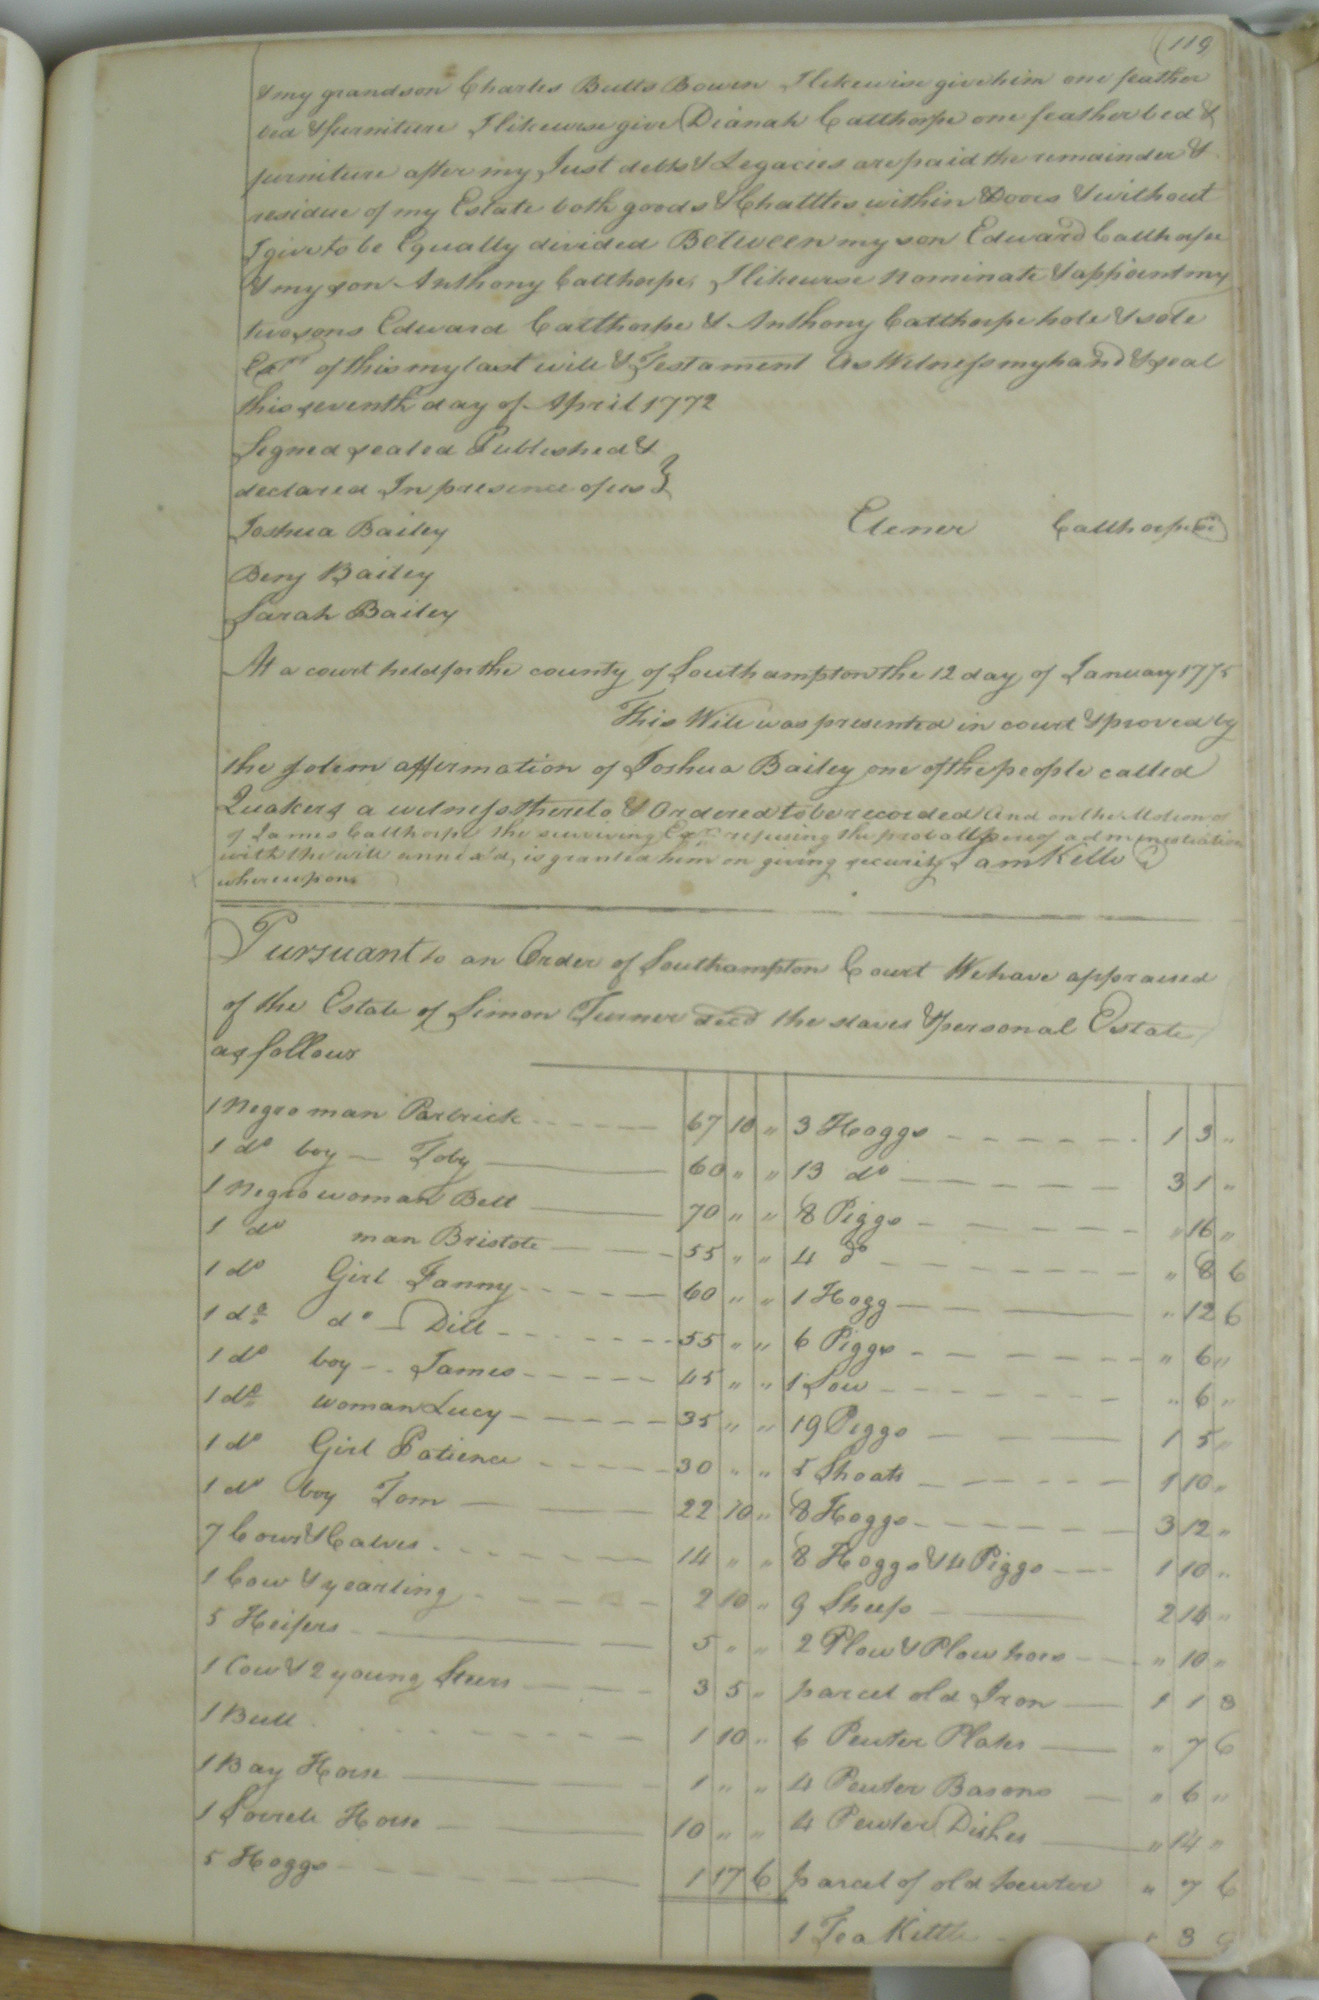 (119
& my grandson Charles Butts Bowen I likewise give him one feather
bed & furniture I likewise give Dianah Calthorpe one feather bed &
furniture after my Just debts & Legacies are paid the remainder &
residue of my Estate both goods & Chattles within Doors & without
I give to be Equally divided Between my son Edward Calthorpe
& my son Anthony Calthorpe, I likewise nominate & appoint my
two sons Edward Calthorpe & Anthony Calthorpe hole & sole
Exrs of this my last will & Testament As Witness my hand & seal
this seventh day of April 1772
Signed sealed Published &
declared In presence of us }
Joshua Bailey Elener Calthorpe
Benj Bailey
Sarah Bailey
At a court held for the county of Southampton the 12 day of January 1775
This Will was presented in court & proved by
the solem affirmation of Joshua Bailey one of the people called
Quakers a witness thereto & Ordered to be recorded And on the Motion of
of James Calthorpe the surviving Exr refusing the probat administration
with the will annex'd, is granted him on giving security Sam Kello
whereupon
Pursuant to an Order of Southampton Court We have appraised
of the Estate of Simon Turner decd the slaves & personal Estate
as follows
1 Negro man Partrick 67 10 " 3 Hoggs 1 3 "
1 do boy Toby 60 " " 13 do 3 1 "
1 Negro woman Bell 70 " " 8 Piggs " 16 "
1 do man Bristole 55 " " 4 do " 8 6
1 do Girl Fanny 60 " " 1 Hogg " 12 6
1 do do Dill 55 " " 6 Piggs " 6 "
1 do boy James 45 " " 1 Sow " 6 "
1 do woman Lucy 35 " " 19 Piggs 1 5 "
1 do Girl Patience 30 " " 5 Shoats 1 10 "
1 do boy Tom 22 10 " 8 Hoggs 3 12 "
7 Cows & Calves 14 " " 8 Hoggs & 4 Piggs 1 10 "
1 Cow & yearling 2 10 " 9 Sheep 2 14 "
5 Heifers 5 " " 2 Plow & Plow hoes " 10 "
1 Cow & 2 young Steers 3 5 " parcel old Iron 1 1 3
1 Bull 1 10 " 6 Peuter Plates " 7 6
1 Bay Horse 1 " " 4 Peuter Basons " 6 "
1 Sorrele Horse 10 " " 4 Peuter Dishes " 14 "
5 Hoggs 1 17 6 parcel of old peuter " 7 6
1 Tea Kittle 3 9